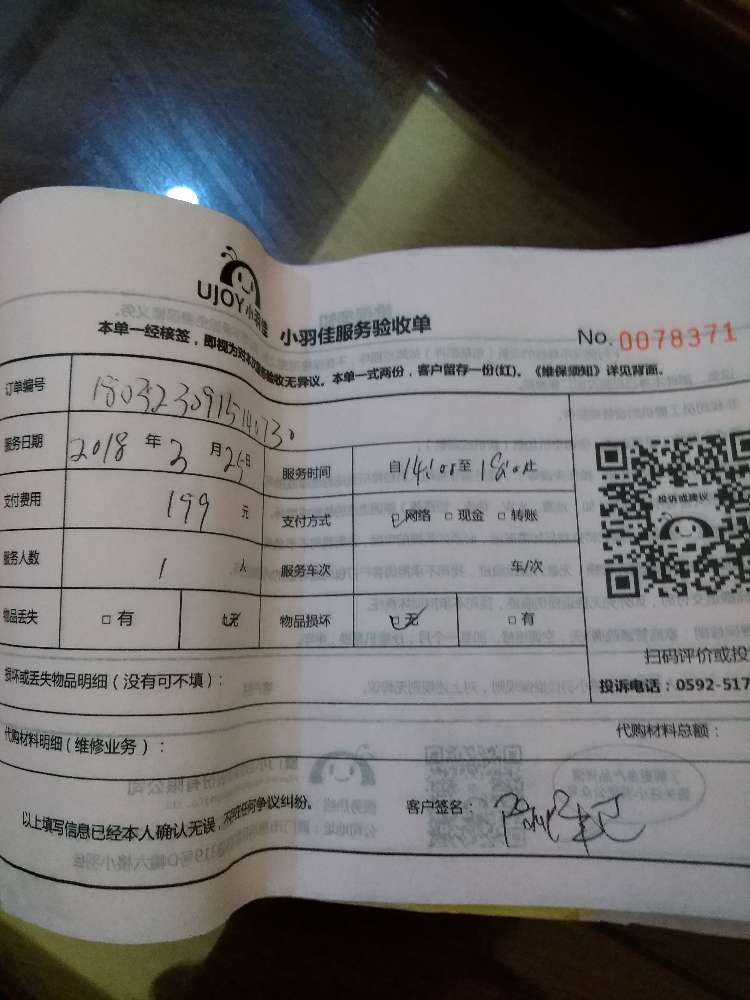 UJOY小羽佳
小羽佳服务验收单
No. 0078371
本单一经核签，即视为对本次服务验收无异议。本单一式两份，客户留存一份(红)。《维保须知》详见背面。
订单编号
服务日期 2018 年 3 月 25 日 服务时间 自14:00至18:00止
支付费用 199 元 支付方式 ☑网络 □现金 □转账
服务人数 1 人 服务车次 车/次
物品丢失 □有 ☑无 物品损坏 ☑无 □有
投诉或建议
扫码评价或投
损坏或丢失物品明细（没有可不填）：
投诉电话：0592-517
代购材料明细(维修业务)：
代购材料总额：
以上填写信息已经本人确认无误，不存在任何争议纠纷。
客户签名：